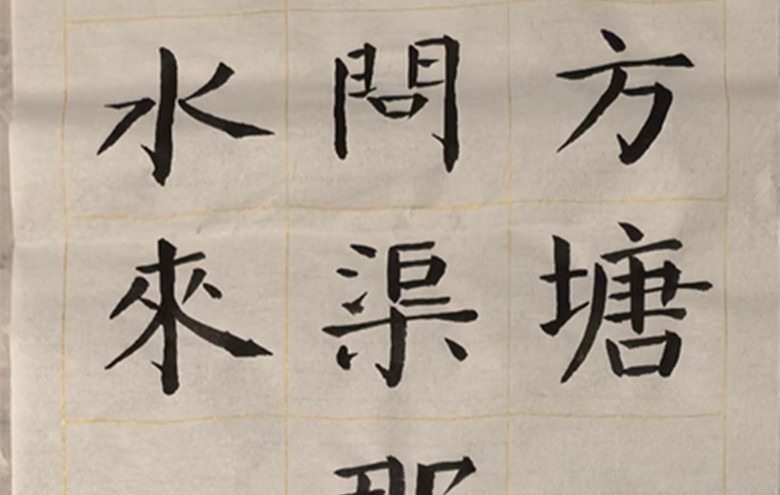 方塘
問渠那
水來